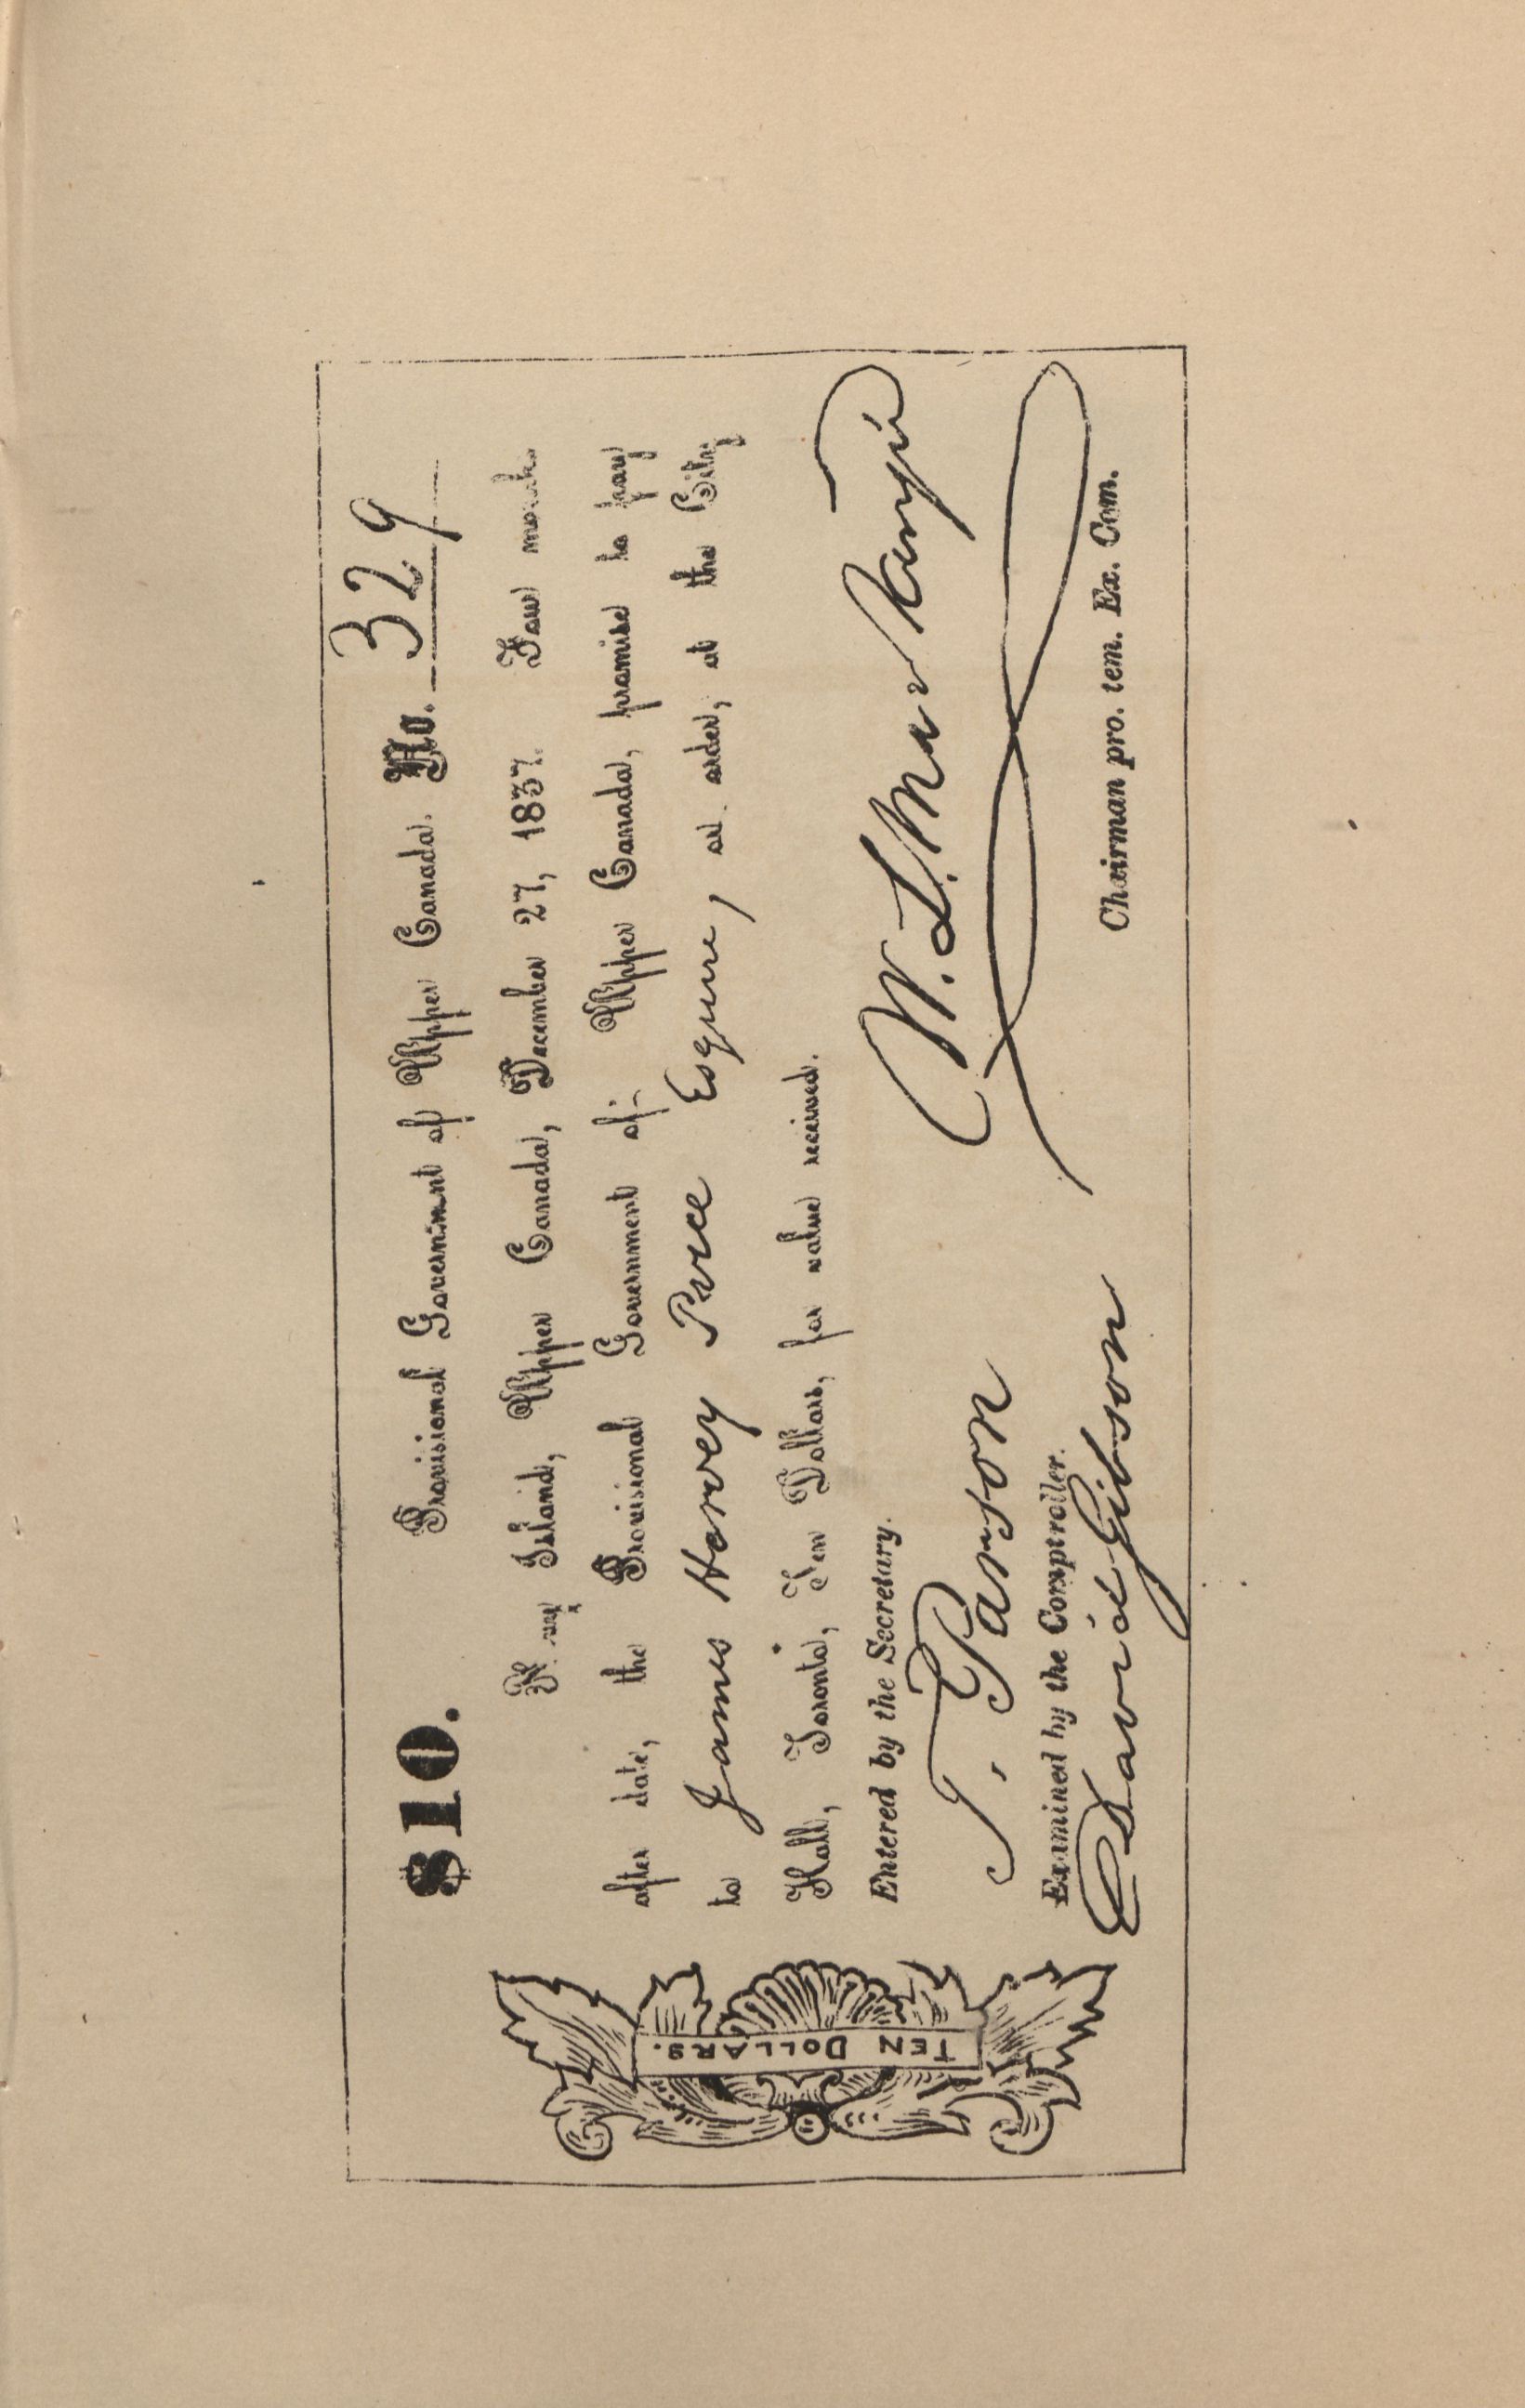 $10. Provisional Government of Upper Canada. No. 329
Navy Island, Upper Canada, December 27, 1837. Four months
after date, the Provisional Government of Upper Canada, promise to pay
to James Harvey Price Esquire, or order, at the City
Hall, Toronto, Ten Dollars, for value received.
Entered by the Secretary.
T. Parson
Examined by the Comptroller.
David Gibson
W. L. MacKenzie
Chairman pro. tem. Ex. Com.
TEN DOLLARS.